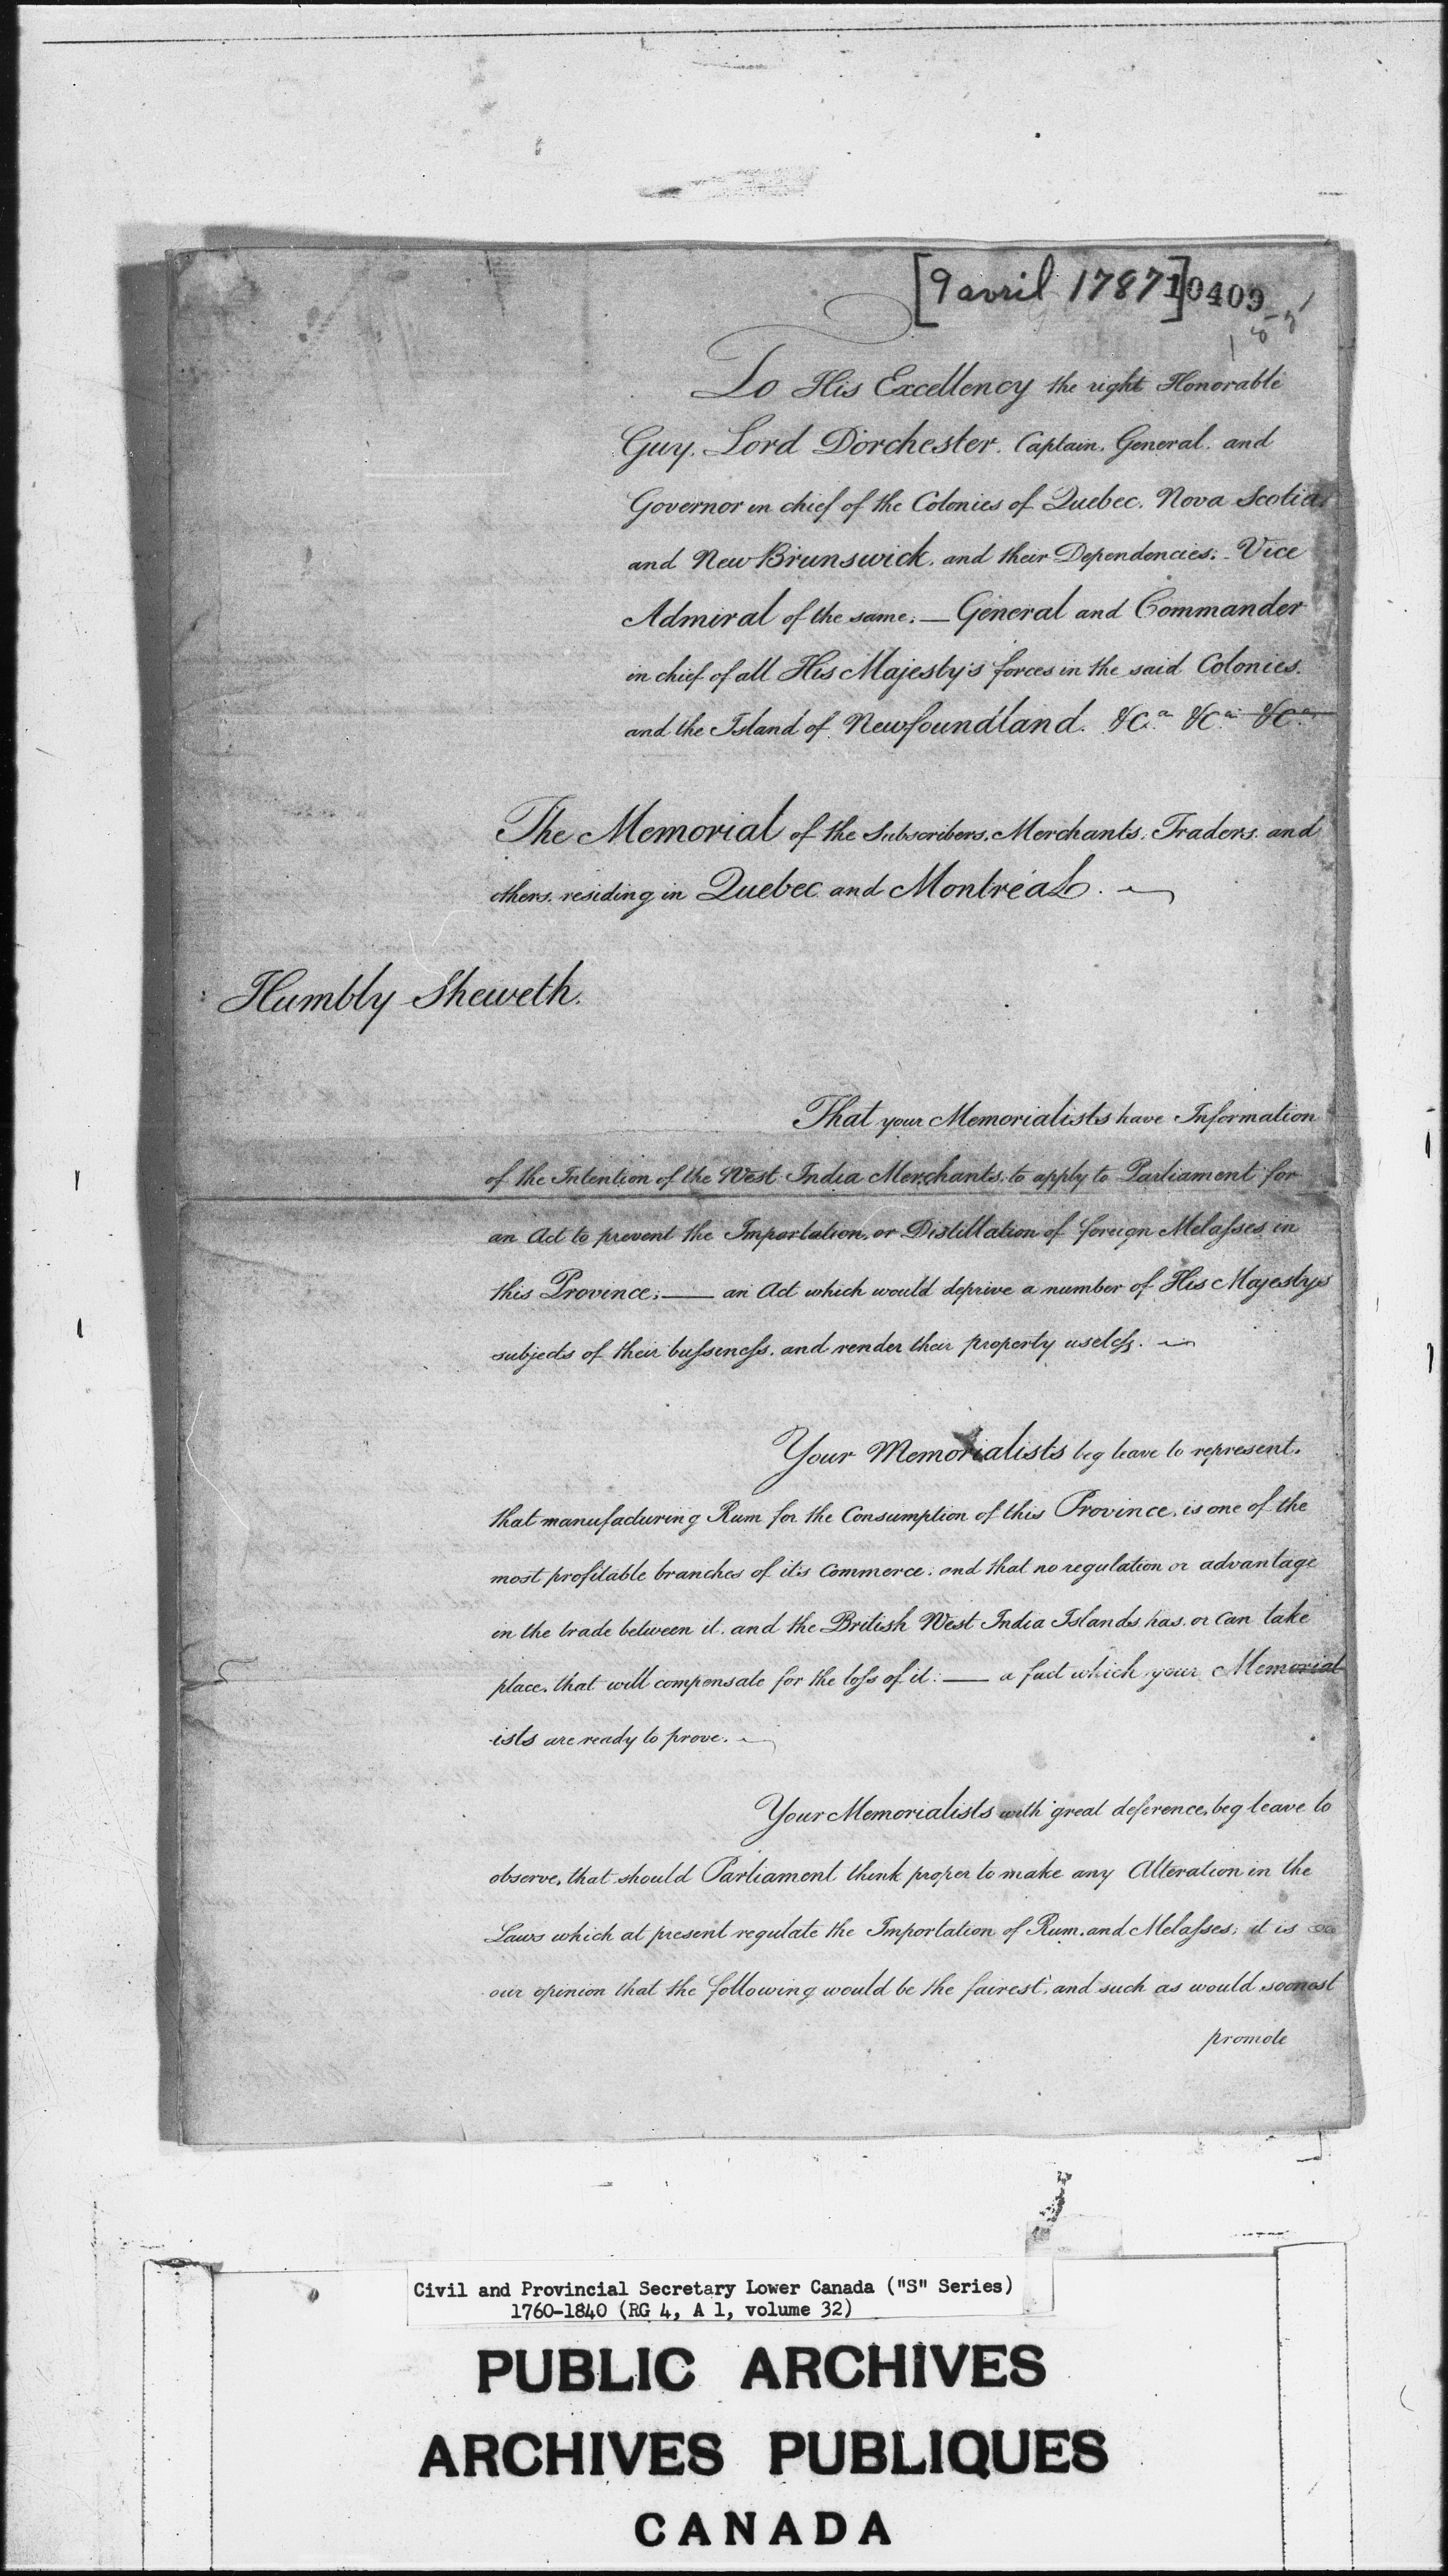 [9 avril 1787]
10409
To His Excellency the right Honorable
Guy, Lord Dorchester, Captain, General, and
Governor in chief of the Colonies of Quebec, Nova Scotia,
and New Brunswick, and their Dependencies; Vice
Admiral of the same; — General and Commander
in chief of all His Majesty's forces in the said Colonies,
and the Island of Newfoundland. &Ca. &Ca. &Ca.
The Memorial of the Subscribers, Merchants, Traders, and
others, residing in Quebec and Montreal. —
Humbly Sheweth.
That your Memorialists have Information
of the Intention of the West India Merchants, to apply to Parliament for
an Act to prevent the Importation, or Distillation of foreign Melasses in
this Province; — an Act which would deprive a number of His Majestys
subjects of their bussiness, and render their property useless. —
Your Memorialists beg leave to represent,
that manufacturing Rum for the Consumption of this Province, is one of the
most profitable branches of its Commerce; and that no regulation or advantage
in the trade between it, and the British West India Islands, has, or can take
place, that will compensate for the loss of it: — a fact which your Memorial
-ists are ready to prove. —
Your Memorialists with great deference, beg leave to
observe, that should Parliament think proper to make any Alteration in the
Laws which at present regulate the Importation of Rum, and Melasses; it is
our opinion that the following would be the fairest, and such as would soonest
promote
Civil and Provincial Secretary Lower Canada ("S" Series)
1760-1840 (RG 4, A 1, volume 32)
PUBLIC ARCHIVES
ARCHIVES PUBLIQUES
CANADA